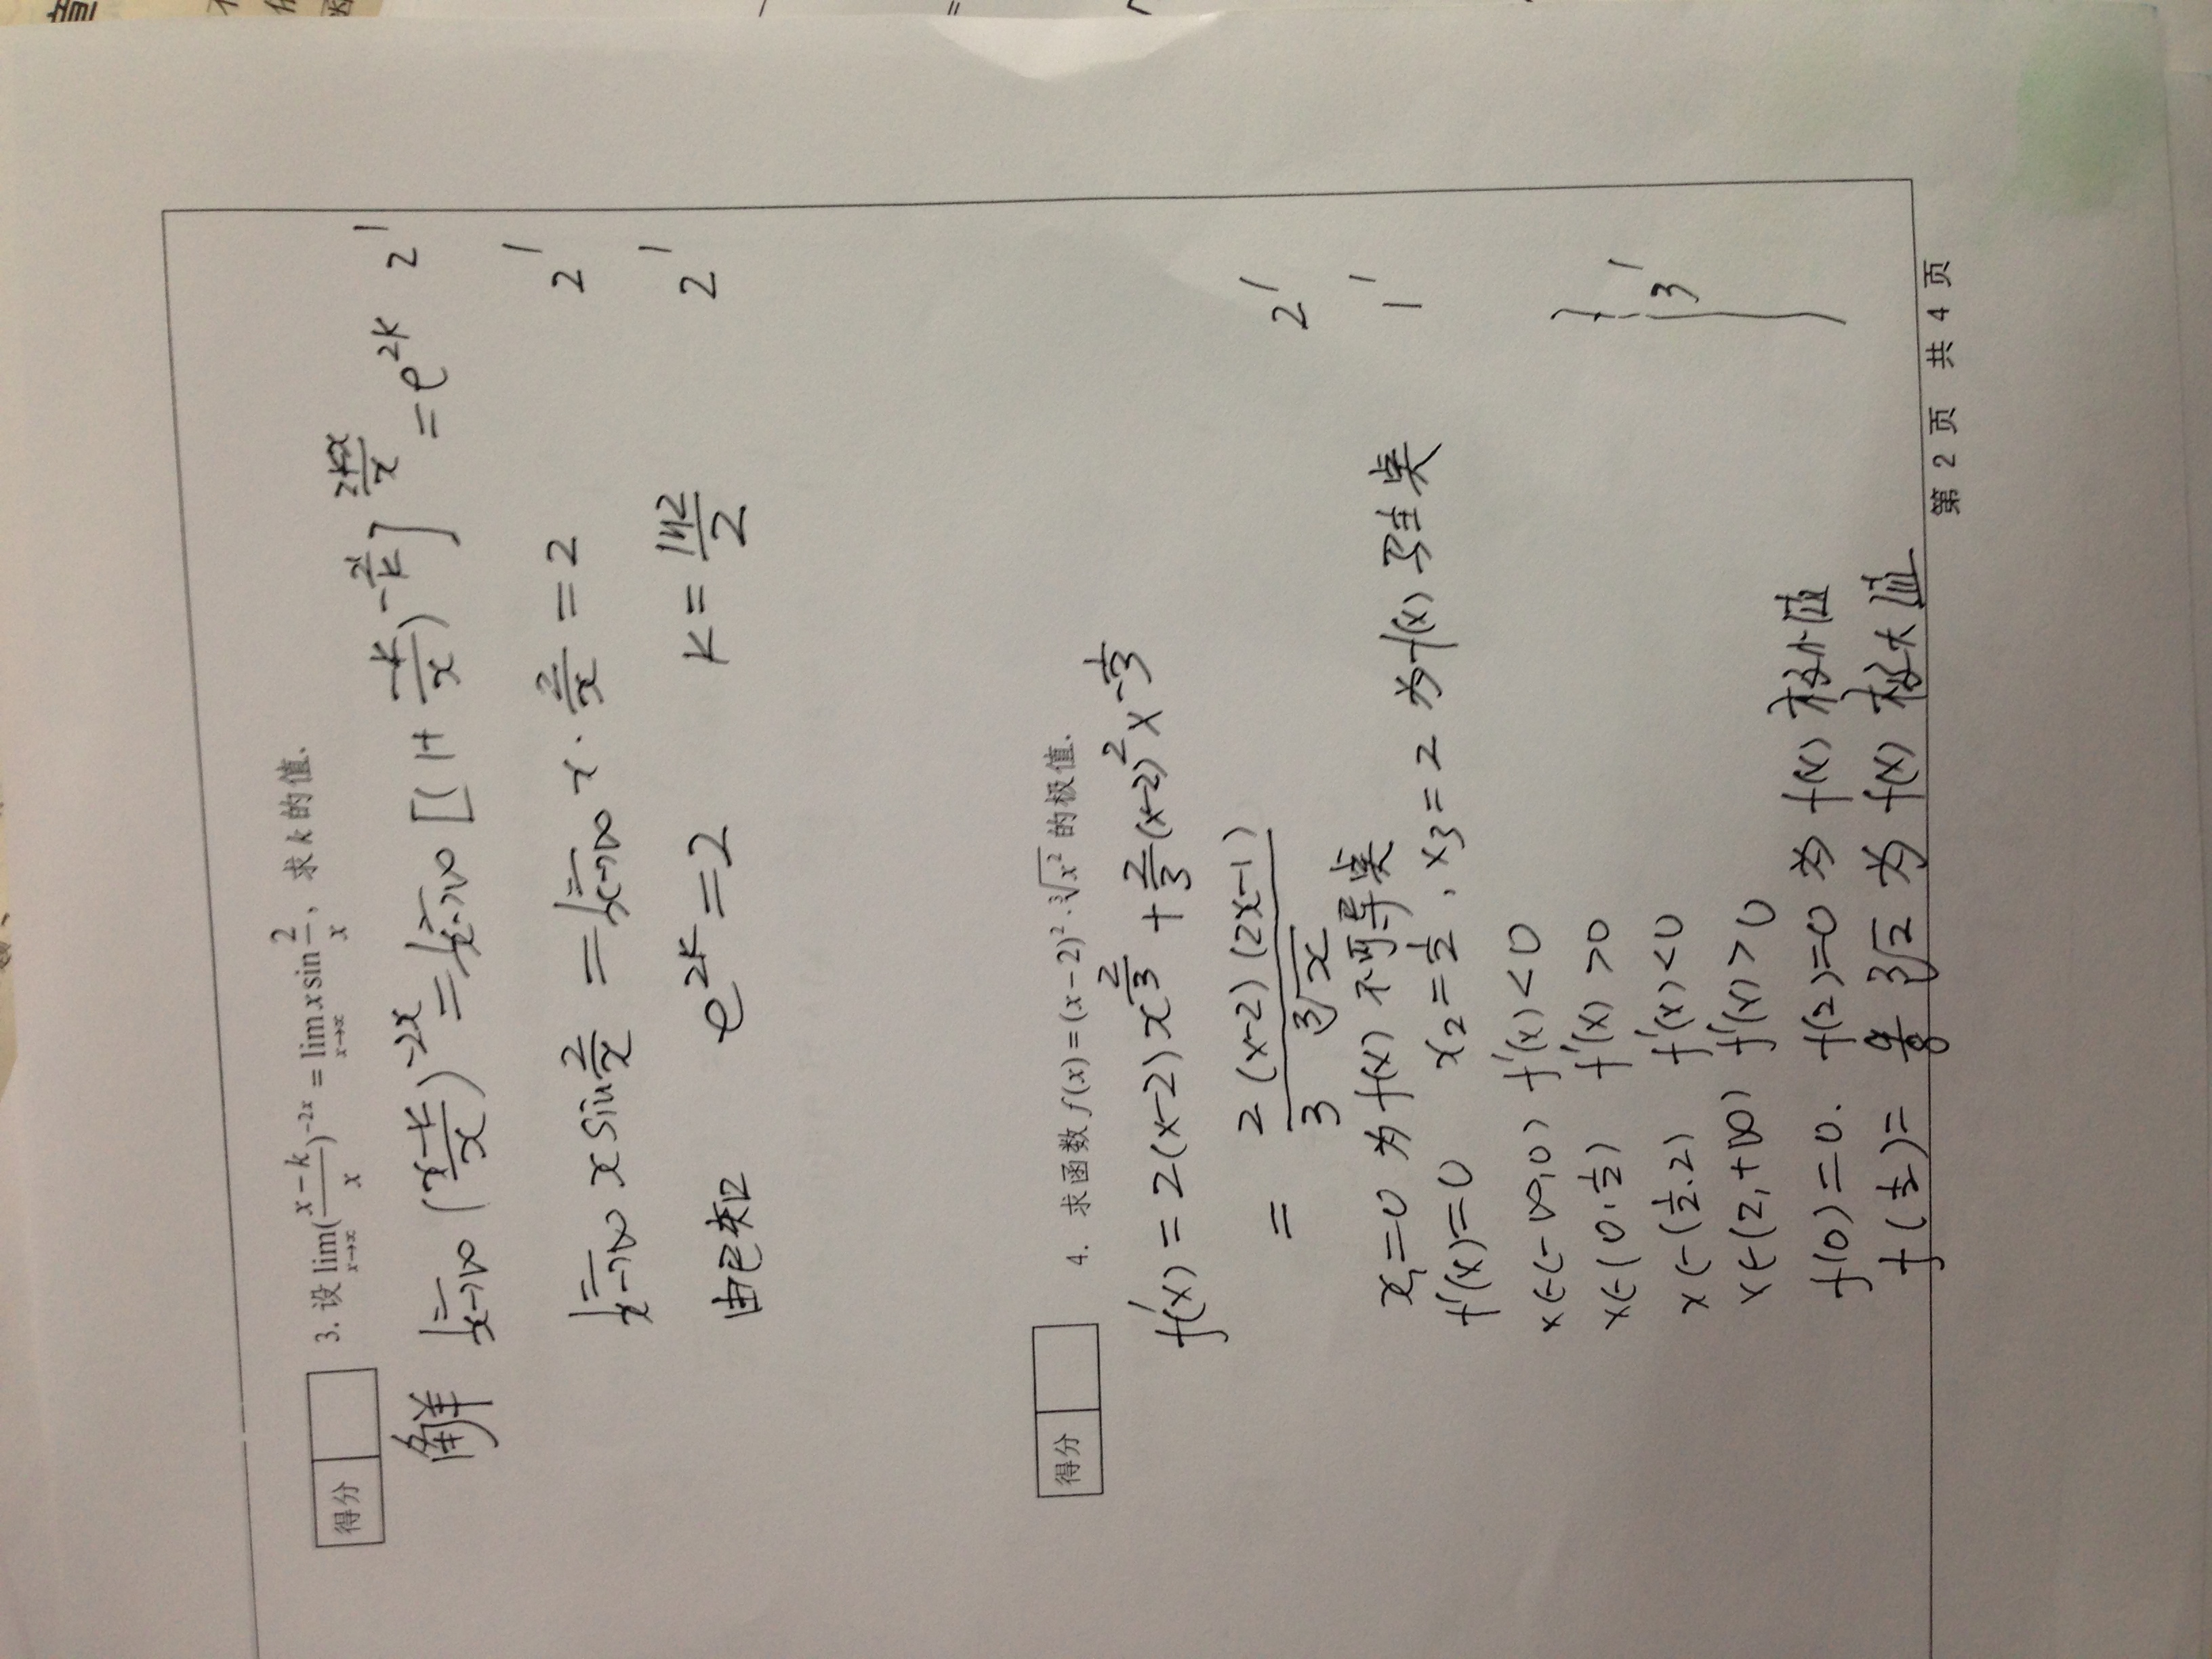 得分
3. 设 lim_{x→∞} (\frac{x-k}{x})^{-2x} = lim_{x→∞} x sin \frac{2}{x}, 求 k 的值.
解 lim_{x→∞} (\frac{x-k}{x})^{-2x} = lim_{x→∞} [(1+\frac{-k}{x})^{-\frac{x}{k}}]^{\frac{2kx}{x}} = e^{2k} 2'
lim_{x→∞} x sin \frac{2}{x} = lim_{x→∞} x · \frac{2}{x} = 2 2'
由已知 e^{2k} = 2 k = \frac{ln2}{2} 2'
得分
4. 求函数 f(x) = (x-2)² · \sqrt[3]{x²} 的极值.
f'(x) = 2(x-2) x^{\frac{2}{3}} + \frac{2}{3}(x-2)^2 x^{-\frac{1}{3}}
= \frac{2(x-2)(2x-1)}{3 \sqrt[3]{x}} 2'
x₁=0 为 f(x) 不可导点
f'(x)=0 x₂=\frac{1}{2}, x₃=2 为 f(x) 驻点 1'
x∈(-∞,0) f'(x)<0
x∈(0,\frac{1}{2}) f'(x)>0
x∈(\frac{1}{2},2) f'(x)<0 3'
x∈(2,+∞) f'(x)>0
f(0)=0. f(2)=0 为 f(x) 极小值
f(\frac{1}{2})= \frac{9}{8} \sqrt[3]{2} 为 f(x) 极大值
第 2 页 共 4 页